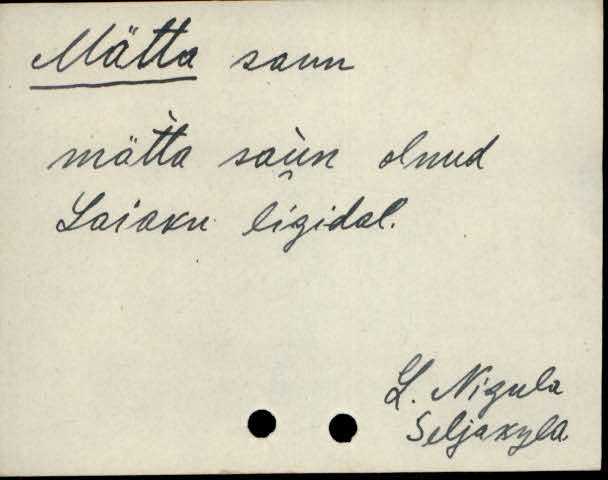 Mätta saun
mät̀ta saùn olnud
Laiaku ligidal.
L. Nigula
Seljaküla